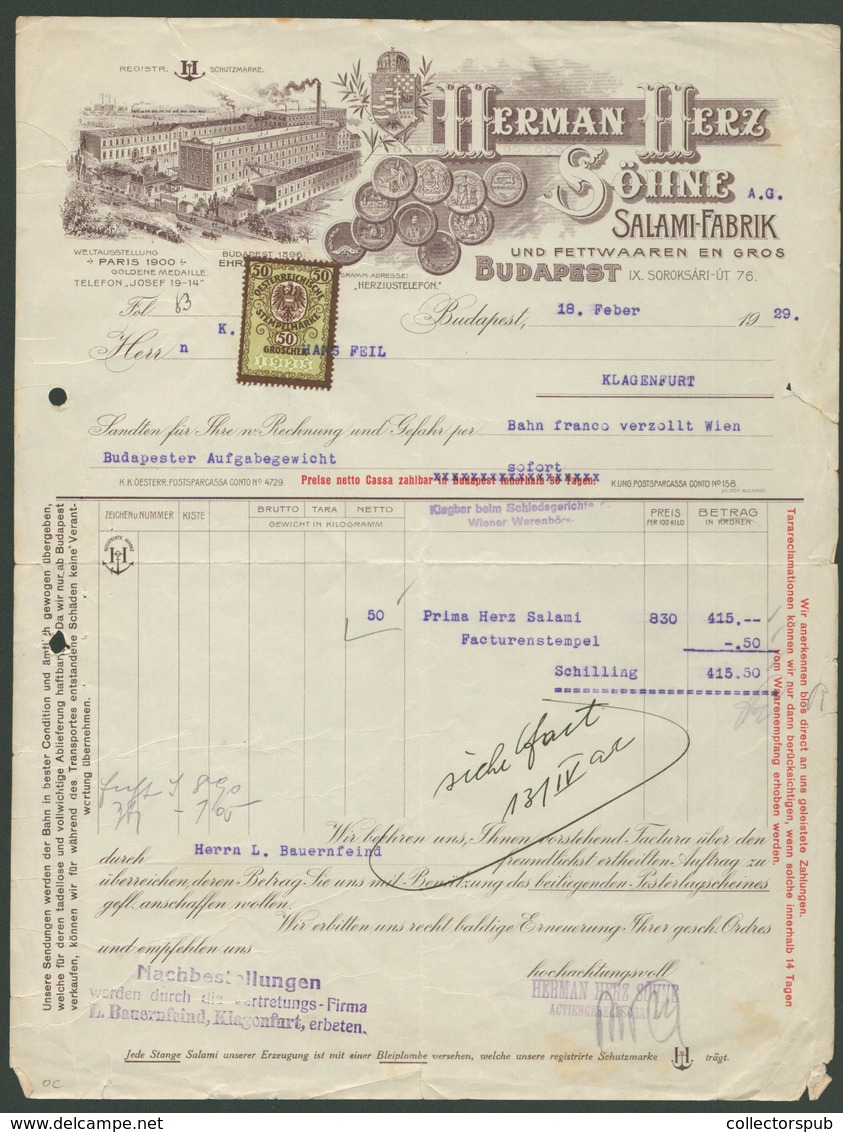 REGISTR. H SCHUTZMARKE.
HERMAN HERZ
SÖHNE A.G.
SALAMI-FABRIK
UND FETTWAAREN EN GROS
BUDAPEST IX. SOROKSÁRI-ÚT 76.
WELTAUSSTELLUNG
PARIS 1900
GOLDENE MEDAILLE.
TELEFON „JOSEF 19-14"
BUDAPEST 1896
EHR
GRAMM-ADRESSE:
„HERZIUSTELEFON."
50 50
OESTERREICHISCHE
STEMPELMARKE
50
GROSCHEN
1925
Fol. 83
Budapest, 18. Feber 1929.
Herr n K. HANS FEIL
KLAGENFURT
Sandten für Ihre w. Rechnung und Gefahr per Bahn franco verzollt Wien
Budapester Aufgabegewicht sofort
K.K. OESTERR. POSTSPARCASSA CONTO No 4729. Preise netto Cassa zahlbar in Budapest innerhalb 30 Tagen. K. UNG. POSTSPARCASSA CONTO No 158.
ZEICHEN U. NUMMER KISTE BRUTTO TARA NETTO PREIS BETRAG
GEWICHT IN KILOGRAMM PER 100 KILO IN KRONEN
Klagbar beim Schiedsgerichte
Wiener Warenbörs
REGISTRIRTE MARKE
H
50 Prima Herz Salami 830 415.--
Facturenstempel -.50
Schilling 415.50
siehe
13/IV
Wir beehren uns, Ihnen vorstehend Factura über den
durch Herrn L. Bauernfeind freundlichst ertheilten Auftrag zu
überreichen, deren Betrag Sie uns mit Benützung des beiliegenden Posterlagscheines
gefl. anschaffen wollen.
Wir erbitten uns recht baldige Erneuerung Ihrer gesch. Ordres
und empfehlen uns
hochachtungsvoll
HERMAN HERZ SÖHNE
ACTIENGESELLSCHAFT
Nachbestellungen
werden durch die Vertretungs-Firma
L. Bauernfeind, Klagenfurt, erbeten.
Jede Stange Salami unserer Erzeugung ist mit einer Bleiplombe versehen, welche unsere registrirte Schutzmarke H trägt.
Unsere Sendungen werden der Bahn in bester Condition und ämtlich gewogen übergeben,
welche für deren tadellose und vollwichtige Ablieferung haftbar. Da wir nur ab Budapest
verkaufen, können wir für während des Transportes entstandene Schäden keine Verant-
wortung übernehmen.
Wir anerkennen blos direct an uns geleistete Zahlungen.
Tarareclamationen können wir nur dann berücksichtigen, wenn solche innerhalb 14 Tagen
vom Waarenempfang erhoben werden.
OC
collectorspub